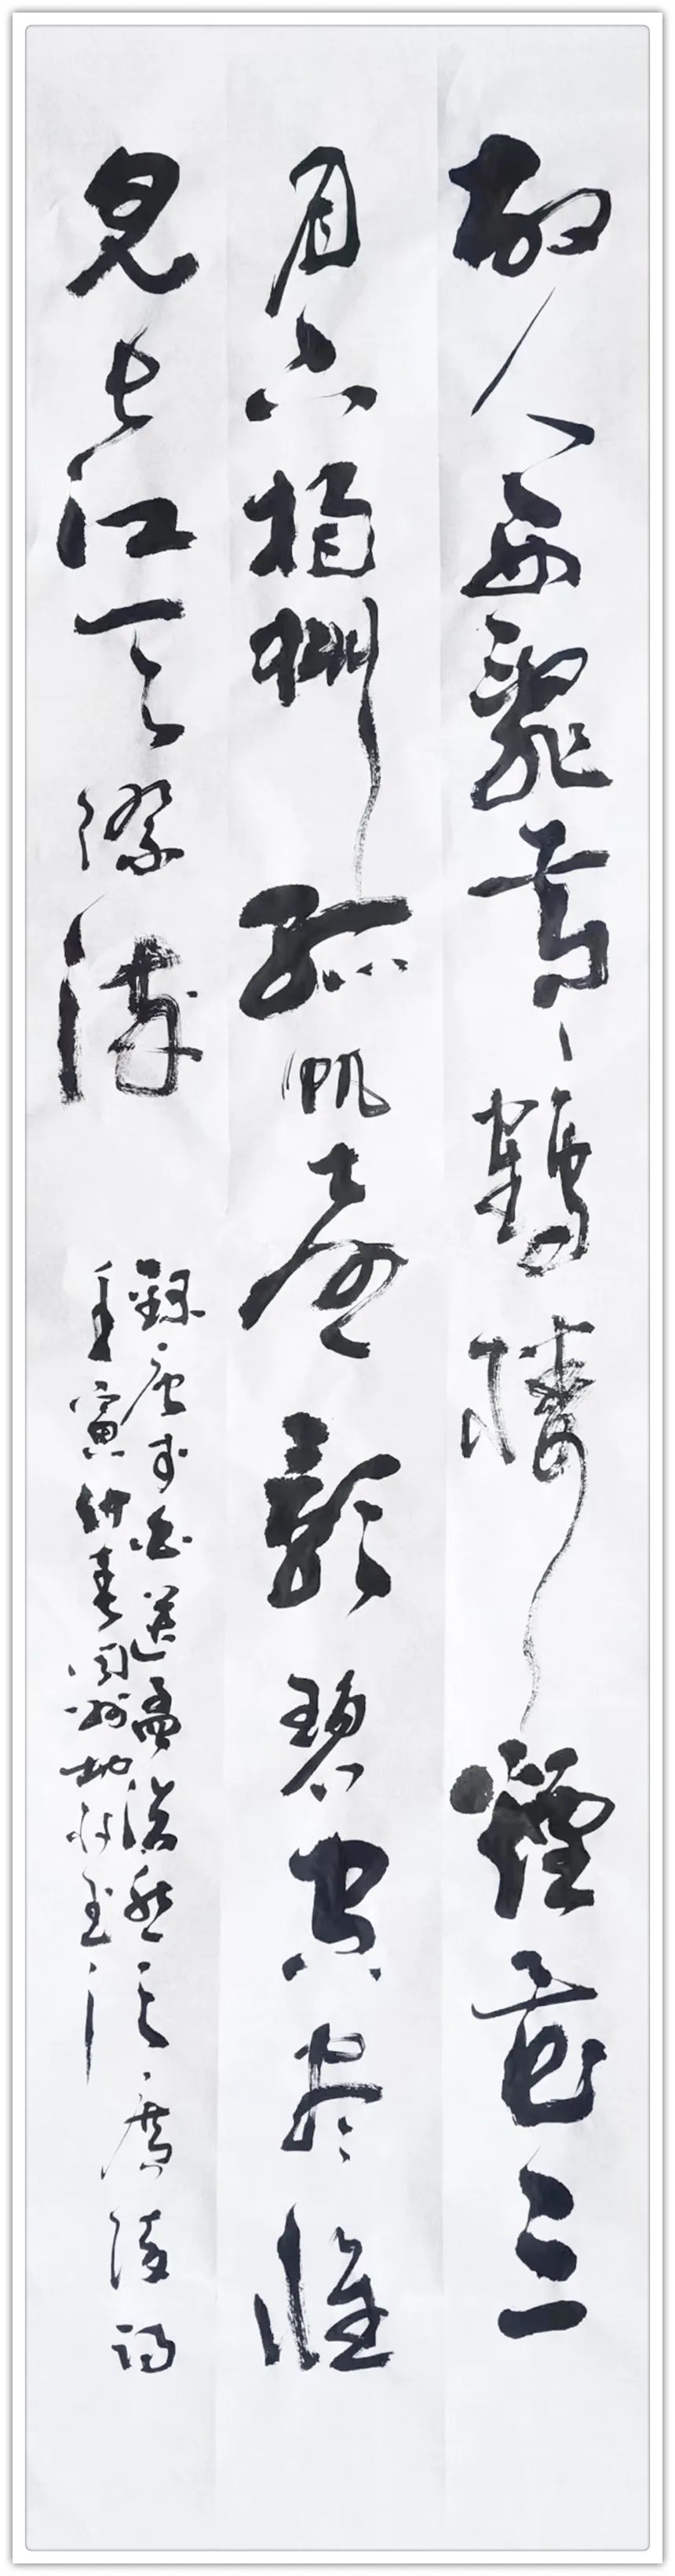 故人西辭黃鶴樓煙花三
月下揚州孤帆遠影碧空盡惟
見長江天際流
錄唐李白送孟浩然之廣陵詩
壬寅仲春